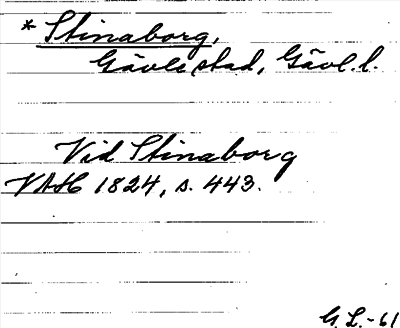 * Stinaborg,
Gävle stad, Gävl. l.
Vid Stinaborg
VAH 1824, s. 443.
G. L. -61